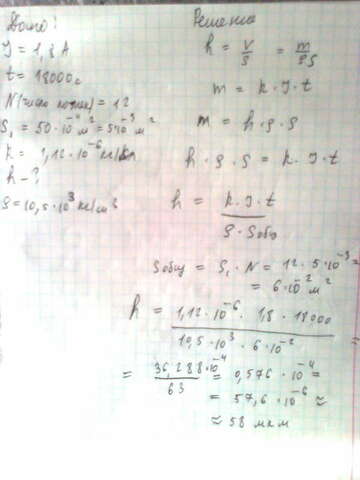 Дано:
I = 1,8 А
t = 18000 с
N (число ложек) = 12
S₁ = 50·10⁻⁴ м² = 5·10⁻³ м²
k = 1,12·10⁻⁶ кг/Кл
h - ?
ρ = 10,5·10³ кг/м³
Решение
h = V/S = m/ρS
m = k·I·t
m = h·ρ·S
h·ρ·S = k·I·t
h = k·I·t / ρ·Sобщ
Sобщ = S₁·N = 12·5·10⁻³ =
= 6·10⁻² м²
h = 1,12·10⁻⁶·1,8·18000 / 10,5·10³·6·10⁻² =
= 36,288·10⁻⁴ / 63 = 0,576·10⁻⁴ =
= 57,6·10⁻⁶ ≈
≈ 58 мкм